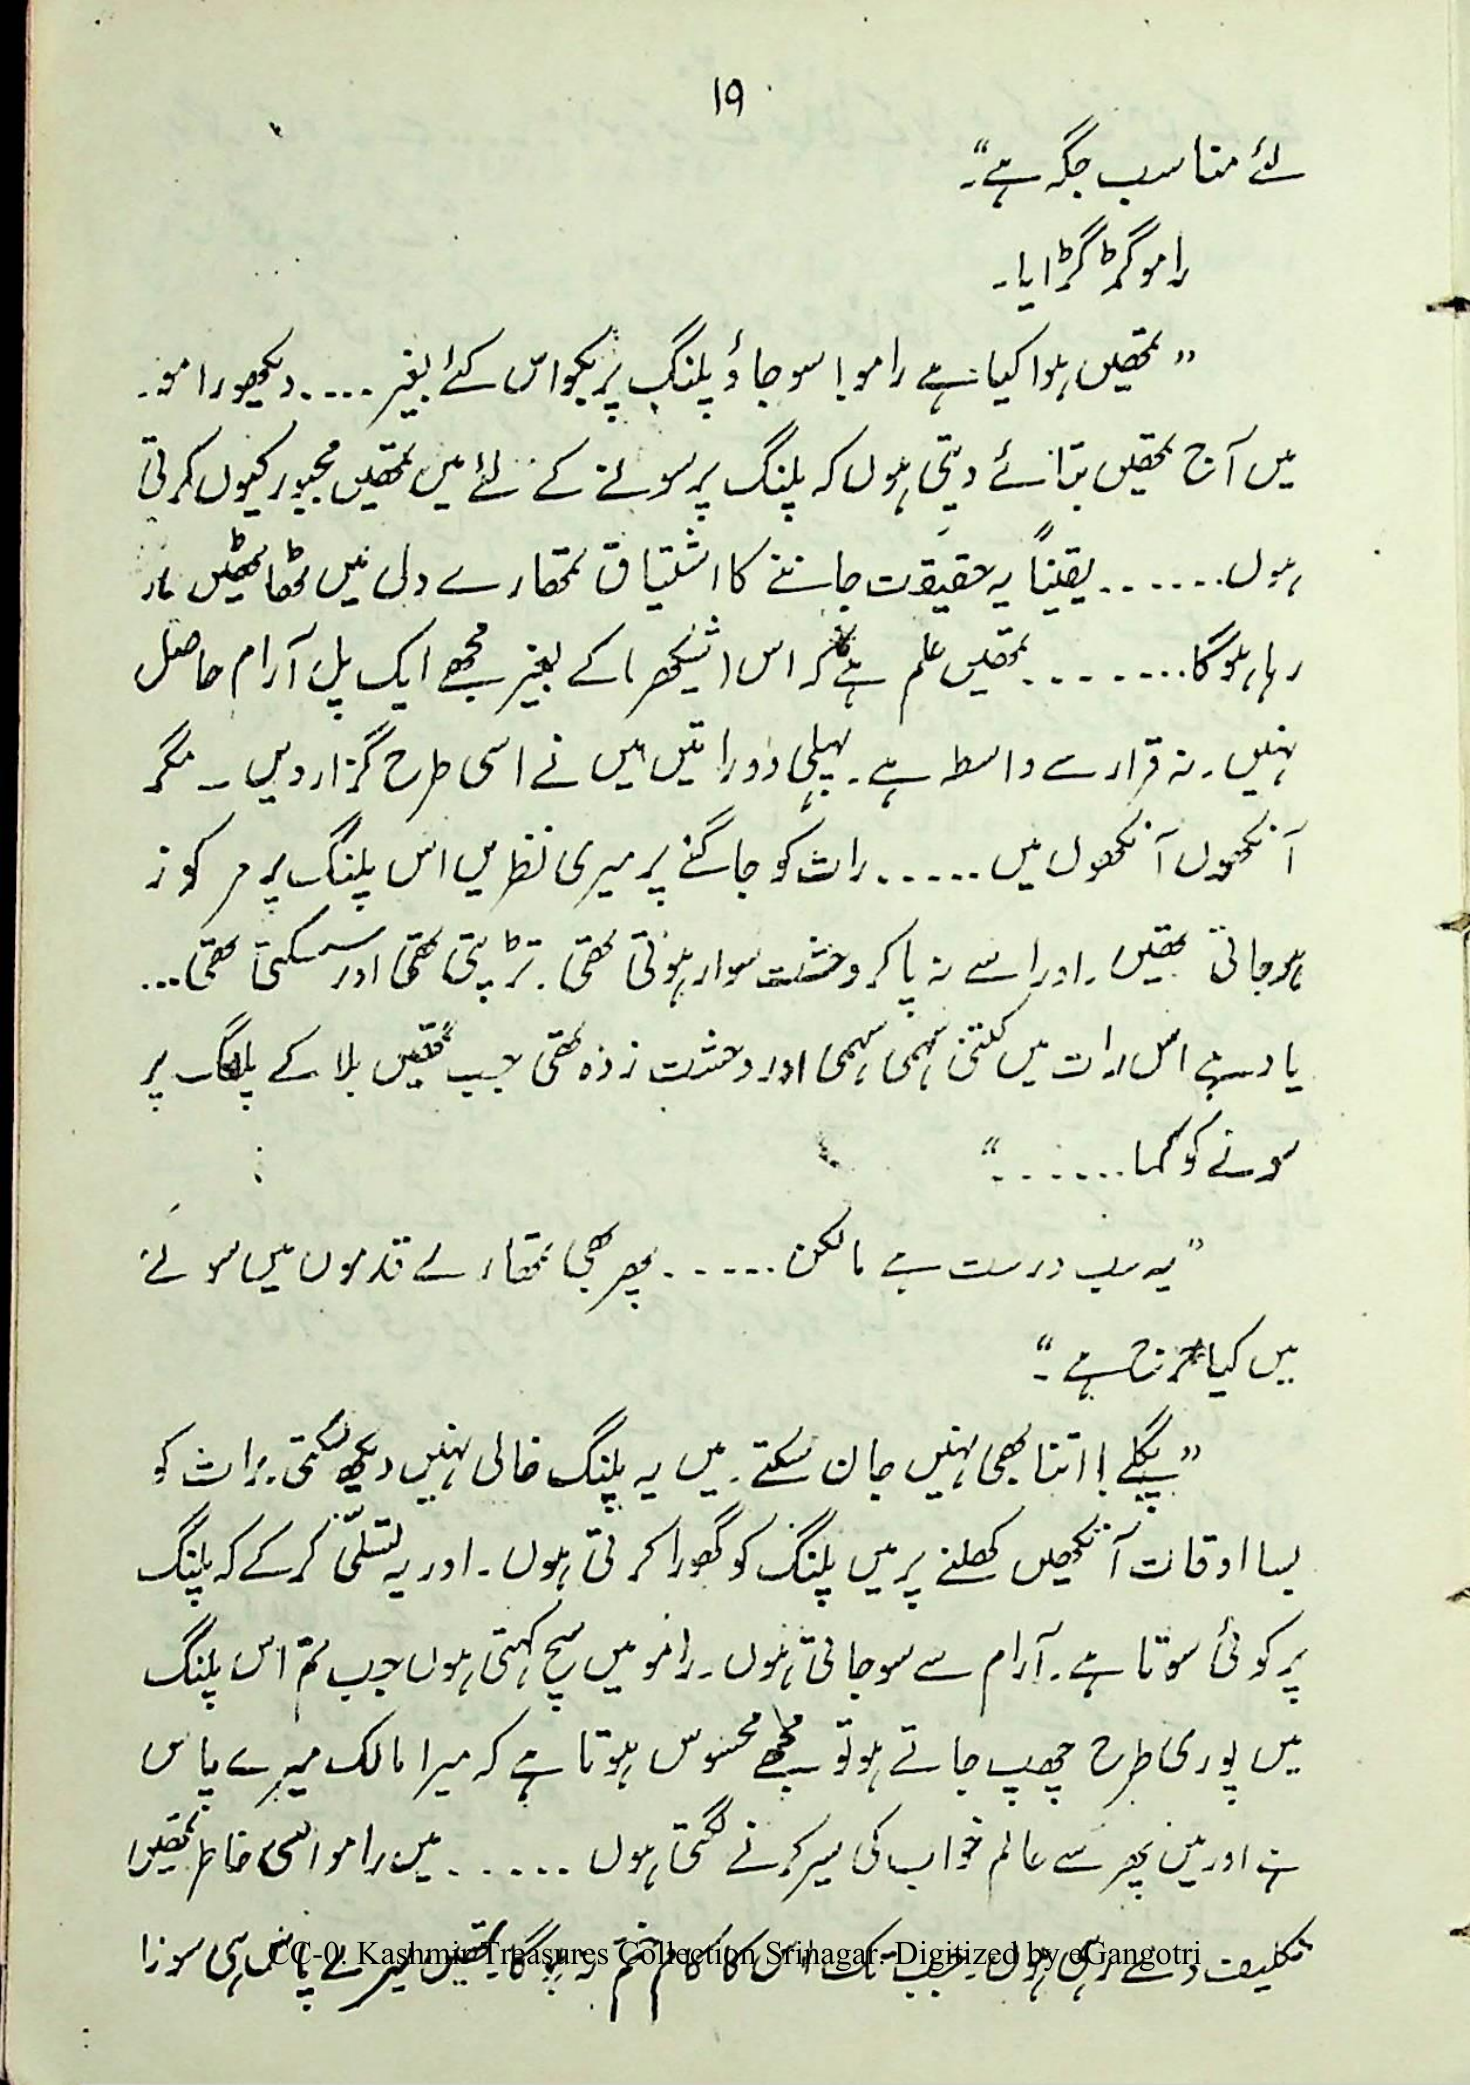 ۱۹
لئے مناسب جگہ ہے“۔
رامو گڑگڑایا۔
”تمھیں ہوا کیا ہے رامو! سو جاؤ پلنگ پر بکواس کئے بغیر .... دیکھو رامو۔
میں آج تمھیں بتائے دیتی ہوں کہ پلنگ پر سونے کے لئے میں تمھیں مجبور کیوں کرتی
ہوں...... یقیناً یہ حقیقت جاننے کا اشتیاق تمھارے دل میں ٹھاٹھیں مار
رہا ہوگا........ تمھیں علم ہے کہ اس کے بغیر مجھے ایک پل آرام حاصل
نہیں۔ نہ قرار سے واسطہ ہے۔ پہلی دو راتیں میں نے اسی طرح گزار دیں ۔ مگر
آنکھوں آنکھوں میں ...... رات کو جاگنے پر میری نظریں اس پلنگ پر مرکوز
ہوجاتی تھیں۔ اور اسے نہ پاکر وحشت سوار ہوتی تھی۔ تڑپتی تھی اور سسکتی تھی...
یاد ہے اس رات میں کتنی سہمی سہمی اور دحشت زدہ تھی جب تمھیں بلا کے پلنگ پر
سونے کو کہا.......“
”یہ سب درست ہے مالکن ...... پھر بھی تمھارے قدموں میں سونے
میں کیا حرج ہے“۔
”پگلے! اتنا بھی نہیں جان سکتے۔ میں یہ پلنگ خالی نہیں دیکھ سکتی۔ رات کو
بسا اوقات آنکھیں کھلنے پر میں پلنگ کو گھورا کرتی ہوں۔ اور یہ تسلّی کرکے کہ پلنگ
پر کوئی سوتا ہے۔ آرام سے سوجاتی ہوں۔ رامو میں سچ کہتی ہوں جب تم اس پلنگ
میں پوری طرح چھپ جاتے ہو تو مجھے محسوس ہوتا ہے کہ میرا مالک میرے پاس
ہے اور میں پھر سے عالم خواب کی سیر کرنے لگتی ہوں ...... میں رامو اسی خاطر تمھیں
تکلیف دے رہی ہوں۔ جب تک اس کا کام ختم نہ ہوگا۔ تمھیں میرے پاس ہی سونا
CC-0. Kashmir Treasures Collection Srinagar. Digitized by eGangotri